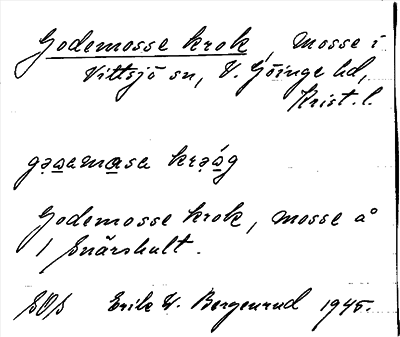 Godemosse krok, mosse i
Vittsjö sn, V. Göinge hd,
Krist. l.
gọạemasa krạ́g
Godemosse krok, mosse å
1 Snärshult.
SOS Erik W. Bergenrud 1945.